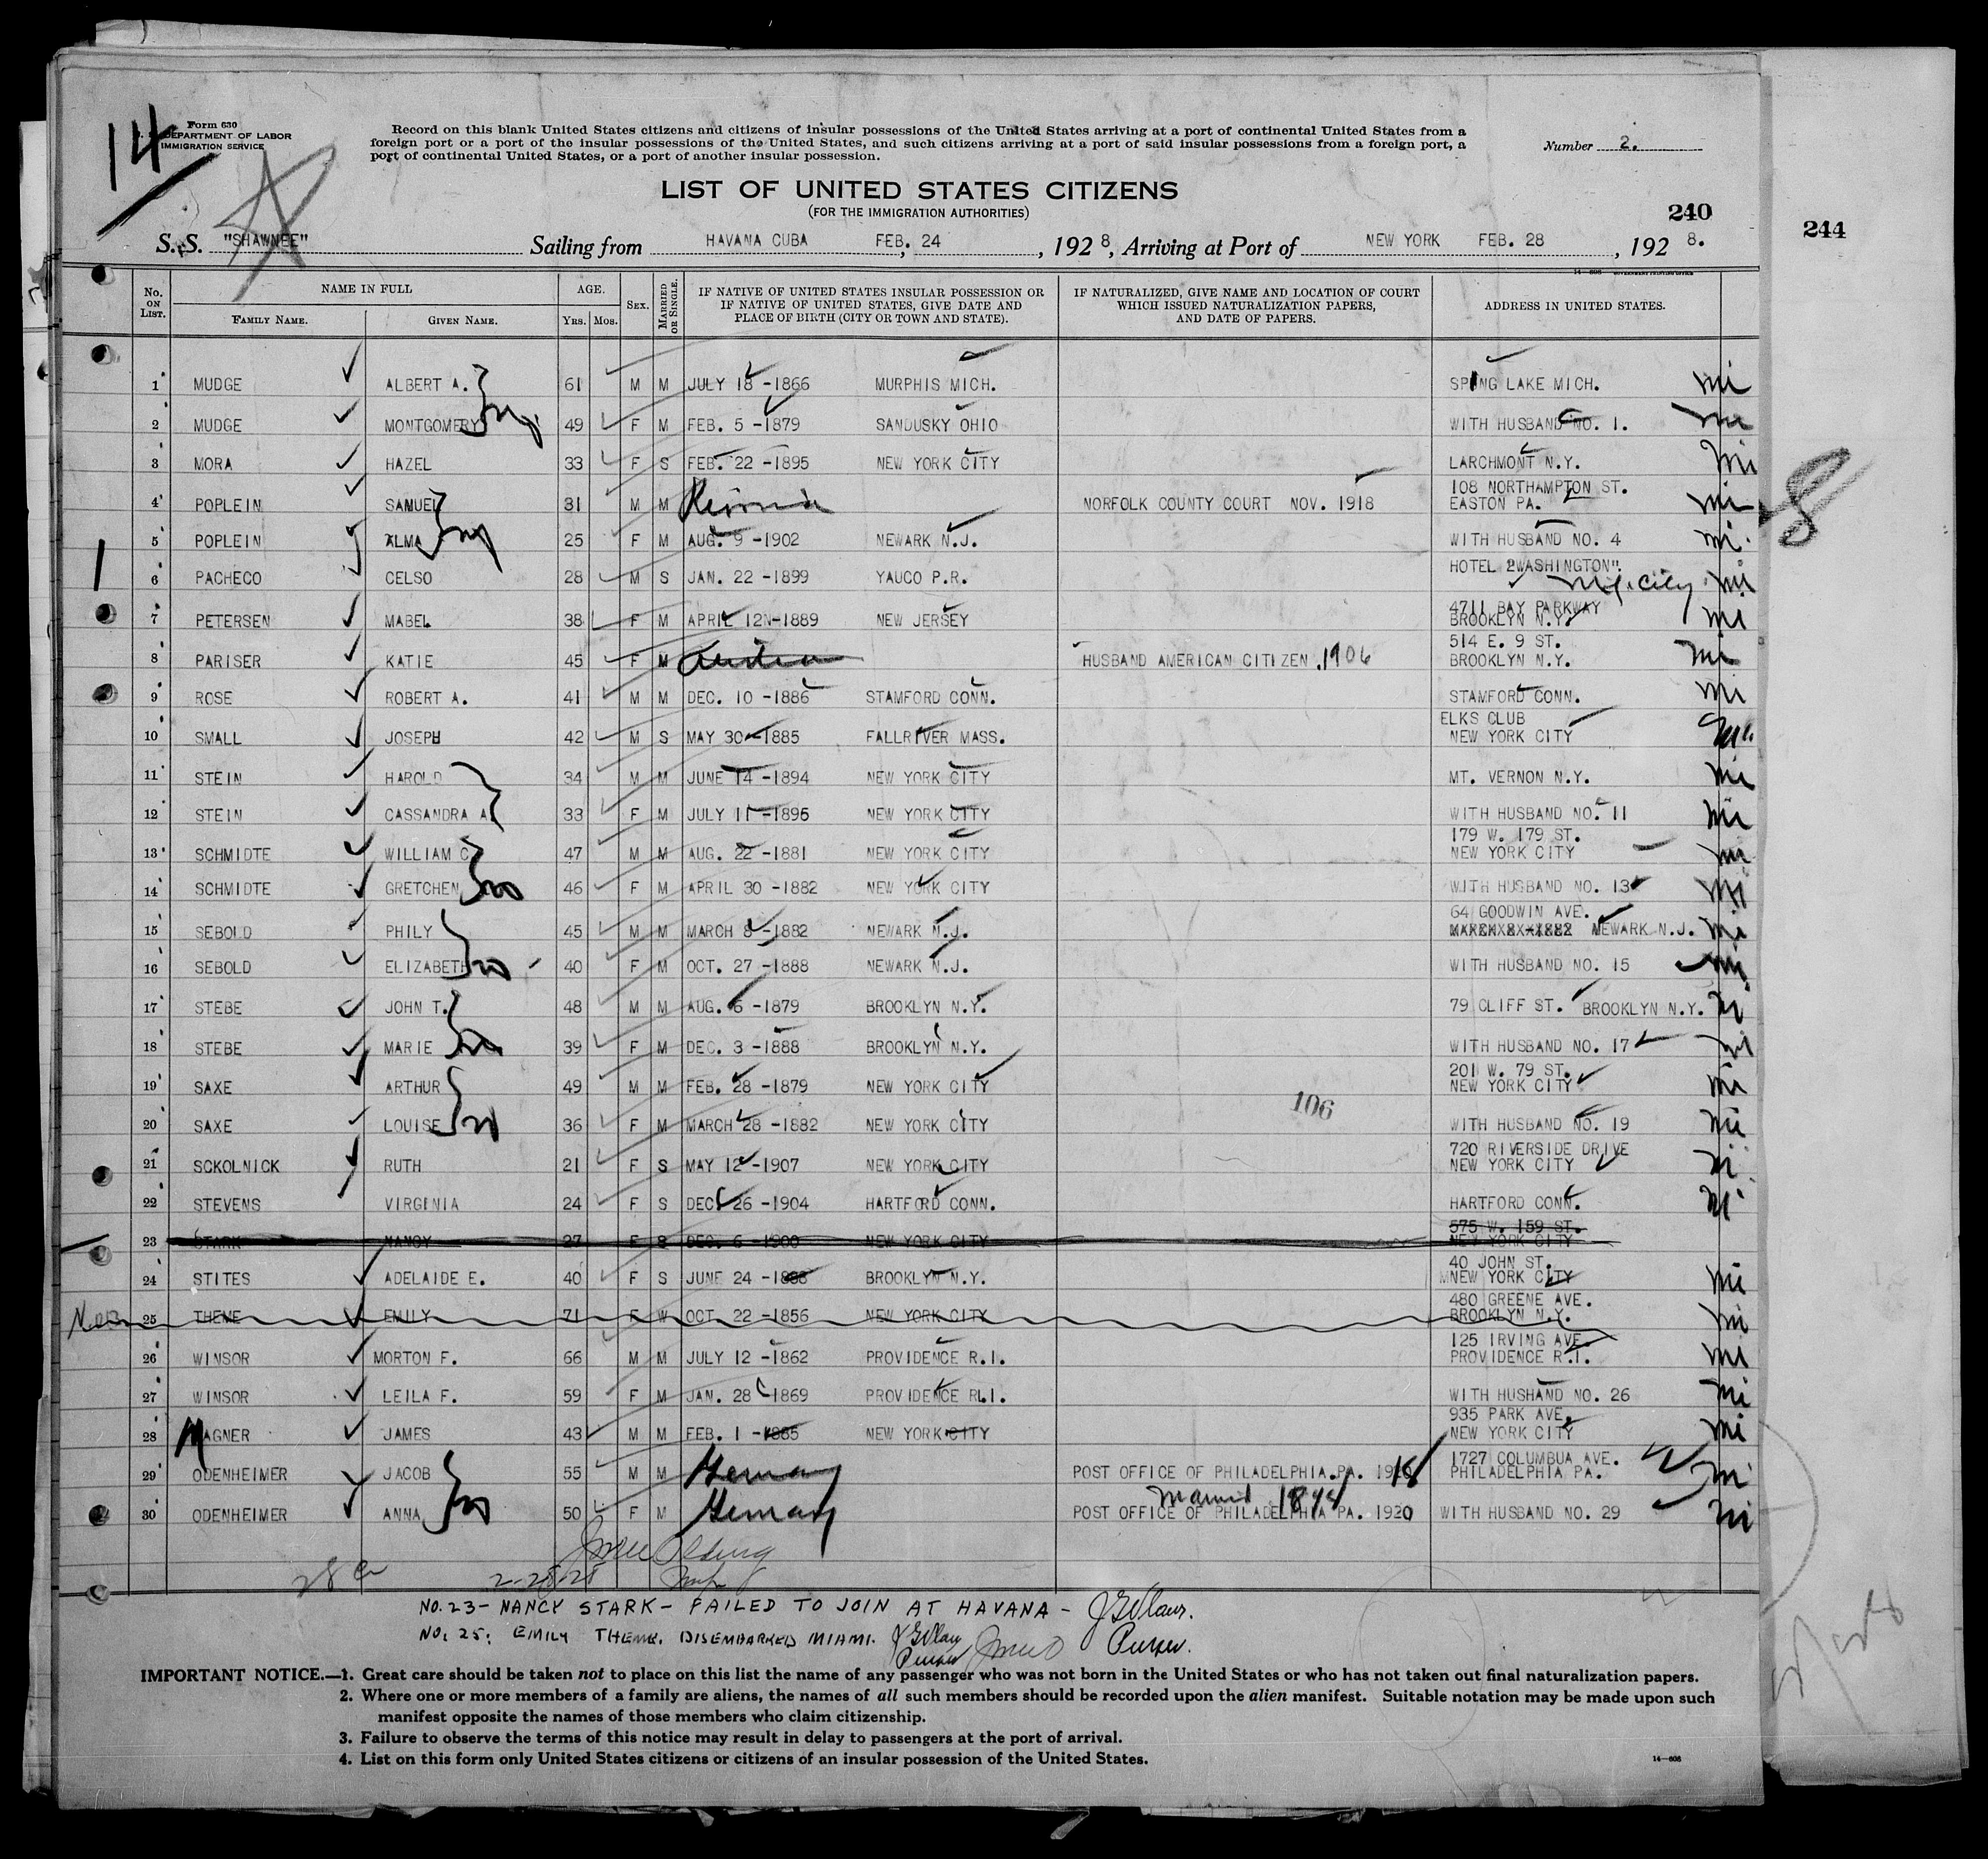 14
Form 630
U. S. DEPARTMENT OF LABOR
IMMIGRATION SERVICE
Record on this blank United States citizens and citizens of insular possessions of the United States arriving at a port of continental United States from a
foreign port or a port of the insular possessions of the United States, and such citizens arriving at a port of said insular possessions from a foreign port, a
port of continental United States, or a port of another insular possession.
Number 2.
LIST OF UNITED STATES CITIZENS
(FOR THE IMMIGRATION AUTHORITIES)
240
244
S. S. "SHAWNEE" Sailing from HAVANA CUBA, FEB. 24, 1928, Arriving at Port of NEW YORK FEB. 28, 1928.
No. ON LIST. NAME IN FULL FAMILY NAME. GIVEN NAME. AGE. YRS. MOS. SEX. MARRIED OR SINGLE. IF NATIVE OF UNITED STATES INSULAR POSSESSION OR IF NATIVE OF UNITED STATES, GIVE DATE AND PLACE OF BIRTH (CITY OR TOWN AND STATE). IF NATURALIZED, GIVE NAME AND LOCATION OF COURT WHICH ISSUED NATURALIZATION PAPERS, AND DATE OF PAPERS. ADDRESS IN UNITED STATES.
1 MUDGE ALBERT A. 61 M M JULY 18 -1866 MURPHIS MICH. SPING LAKE MICH.
2 MUDGE MONTGOMERY 49 F M FEB. 5 -1879 SANDUSKY OHIO WITH HUSBAND NO. 1.
3 MORA HAZEL 33 F S FEB. 22 -1895 NEW YORK CITY LARCHMONT N.Y.
4 POPLEIN SAMUEL 31 M M NORFOLK COUNTY COURT NOV. 1918 108 NORTHAMPTON ST. EASTON PA.
5 POPLEIN ALMA 25 F M AUG. 9 -1902 NEWARK N.J. WITH HUSBAND NO. 4
6 PACHECO CELSO 28 M S JAN. 22 -1899 YAUCO P.R. HOTEL "WASHINGTON". N.Y. City
7 PETERSEN MABEL 38 F M APRIL 12 -1889 NEW JERSEY 4711 BAY PARKWAY BROOKLYN N.Y.
8 PARISER KATIE 45 F M HUSBAND AMERICAN CITIZEN. 1906 514 E. 9 ST. BROOKLYN N.Y.
9 ROSE ROBERT A. 41 M M DEC. 10 -1886 STAMFORD CONN. STAMFORD CONN.
10 SMALL JOSEPH 42 M S MAY 30 -1885 FALLRIVER MASS. ELKS CLUB NEW YORK CITY
11 STEIN HAROLD 34 M M JUNE 14 -1894 NEW YORK CITY MT. VERNON N.Y.
12 STEIN CASSANDRA A 33 F M JULY 11 -1895 NEW YORK CITY WITH HUSBAND NO. 11
13 SCHMIDTE WILLIAM C. 47 M M AUG. 22 -1881 NEW YORK CITY 179 W. 179 ST. NEW YORK CITY
14 SCHMIDTE GRETCHEN 46 F M APRIL 30 -1882 NEW YORK CITY WITH HUSBAND NO. 13
15 SEBOLD PHILY 45 M M MARCH 8 -1882 NEWARK N.J. 64 GOODWIN AVE. NEWARK N.J.
16 SEBOLD ELIZABETH 40 F M OCT. 27 -1888 NEWARK N.J. WITH HUSBAND NO. 15
17 STEBE JOHN T. 48 M M AUG. 6 -1879 BROOKLYN N.Y. 79 CLIFF ST. BROOKLYN N.Y.
18 STEBE MARIE 39 F M DEC. 3 -1888 BROOKLYN N.Y. WITH HUSBAND NO. 17
19 SAXE ARTHUR 49 M M FEB. 28 -1879 NEW YORK CITY 201 W. 79 ST. NEW YORK CITY
106
20 SAXE LOUISE 36 F M MARCH 28 -1882 NEW YORK CITY WITH HUSBAND NO. 19
21 SCKOLNICK RUTH 21 F S MAY 12 -1907 NEW YORK CITY 720 RIVERSIDE DRIVE NEW YORK CITY
22 STEVENS VIRGINIA 24 F S DEC. 26 -1904 HARTFORD CONN. HARTFORD CONN.
23 STARK NANCY 27 F S DEC. 6 -1900 NEW YORK CITY 575 W. 159 ST. NEW YORK CITY
24 STITES ADELAIDE E. 40 F S JUNE 24 -1888 BROOKLYN N.Y. 40 JOHN ST. NEW YORK CITY
25 THEME EMILY 71 F W OCT. 22 -1856 NEW YORK CITY 480 GREENE AVE. BROOKLYN N.Y.
26 WINSOR MORTON F. 66 M M JULY 12 -1862 PROVIDENCE R.I. 125 IRVING AVE. PROVIDENCE R.I.
27 WINSOR LEILA F. 59 F M JAN. 28 -1869 PROVIDENCE R.I. WITH HUSHAND NO. 26
28 MAGNER JAMES 43 M M FEB. 1 -1885 NEW YORK CITY 935 PARK AVE. NEW YORK CITY
29 ODENHEIMER JACOB 55 M M Germany POST OFFICE OF PHILADELPHIA.PA. 1920 18 1727 COLUMBUA AVE. PHILADELPHIA PA.
Married
30 ODENHEIMER ANNA 50 F M Germany POST OFFICE OF PHILADELPHIA PA. 1920 WITH HUSBAND NO. 29
2-28-28
NO. 23 - NANCY STARK - FAILED TO JOIN AT HAVANA -
NO. 25: EMILY THEME. DISEMBARKED MIAMI. Purser Purser.
IMPORTANT NOTICE.—1. Great care should be taken not to place on this list the name of any passenger who was not born in the United States or who has not taken out final naturalization papers.
2. Where one or more members of a family are aliens, the names of all such members should be recorded upon the alien manifest. Suitable notation may be made upon such
manifest opposite the names of those members who claim citizenship.
3. Failure to observe the terms of this notice may result in delay to passengers at the port of arrival.
4. List on this form only United States citizens or citizens of an insular possession of the United States.
14—608